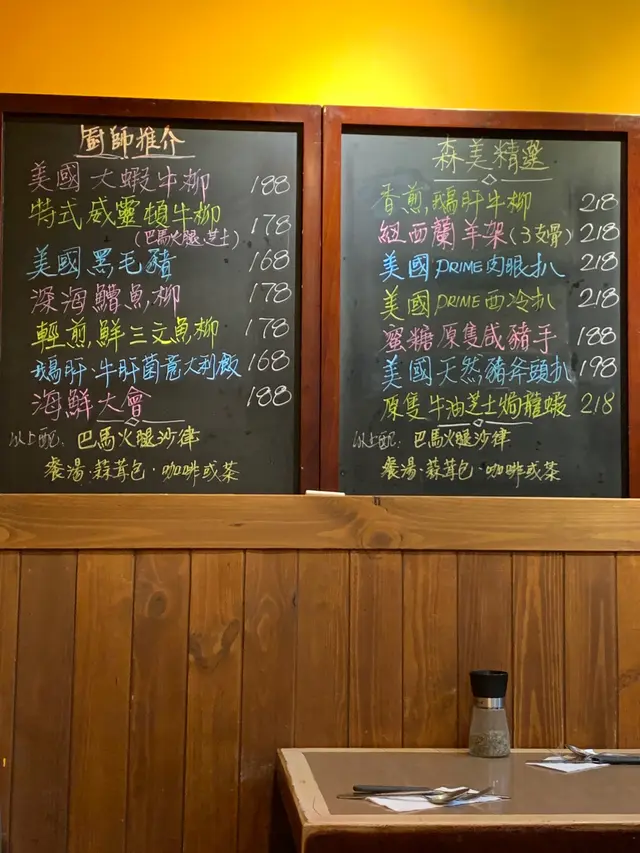 廚師推介
美國大蝦牛柳 188
特式威靈頓牛柳 178
(巴馬火腿.芝士)
美國黑毛豬 168
深海鱈魚柳 178
輕煎鮮三文魚柳 178
鵝肝.牛肝菌意大利飯 168
海鮮大會 188
以上配: 巴馬火腿沙律
餐湯.蒜茸包.咖啡或茶
森美精選
香煎鵝肝牛柳 218
紐西蘭羊架(3支骨) 218
美國PRIME肉眼扒 218
美國PRIME西冷扒 218
蜜糖原隻咸豬手 188
美國天然豬斧頭扒 198
原隻牛油芝士焗龍蝦 218
以上配: 巴馬火腿沙律
餐湯.蒜茸包.咖啡或茶